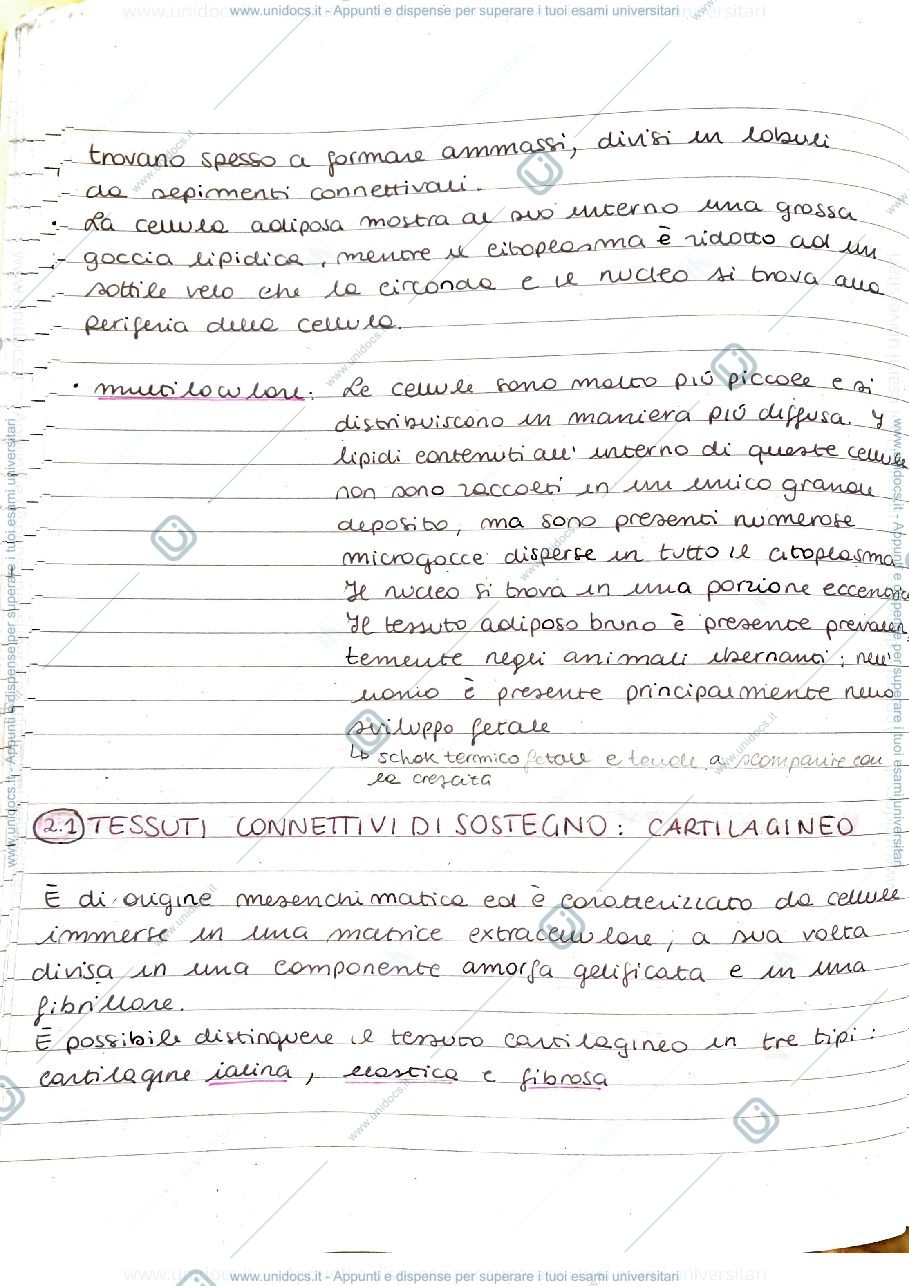 www.unidocs.it - Appunti e dispense per superare i tuoi esami universitari
trovano spesso a formare ammassi, divisi in lobuli
da sepimenti connettivali.
· La cellula adiposa mostra al suo interno una grossa
goccia lipidica, mentre il citoplasma è ridotto ad un
sottile velo che la circonda e il nucleo si trova alla
periferia della cellula.
· multiloculare: Le cellule sono molto più piccole e si
distribuiscono in maniera più diffusa. I
lipidi contenuti all'interno di queste cellule
non sono raccolti in un unico grande
deposito, ma sono presenti numerose
microgocce disperse in tutto il citoplasma.
Il nucleo si trova in una porzione eccentrica
Il tessuto adiposo bruno è presente prevalen
temente negli animali ibernanti; nell'
uomo è presente principalmente nello
sviluppo fetale
↳ schok termico fetale e tende a scomparire con
la crescita
2.1 TESSUTI CONNETTIVI DI SOSTEGNO: CARTILAGINEO
È di origine mesenchimatica ed è caratterizzato da cellule
immerse in una matrice extracellulare, a sua volta
divisa in una componente amorfa gelificata e in una
fibrillare.
È possibile distinguere il tessuto cartilagineo in tre tipi:
cartilagine ialina, elastica e fibrosa
www.unidocs.it - Appunti e dispense per superare i tuoi esami universitari